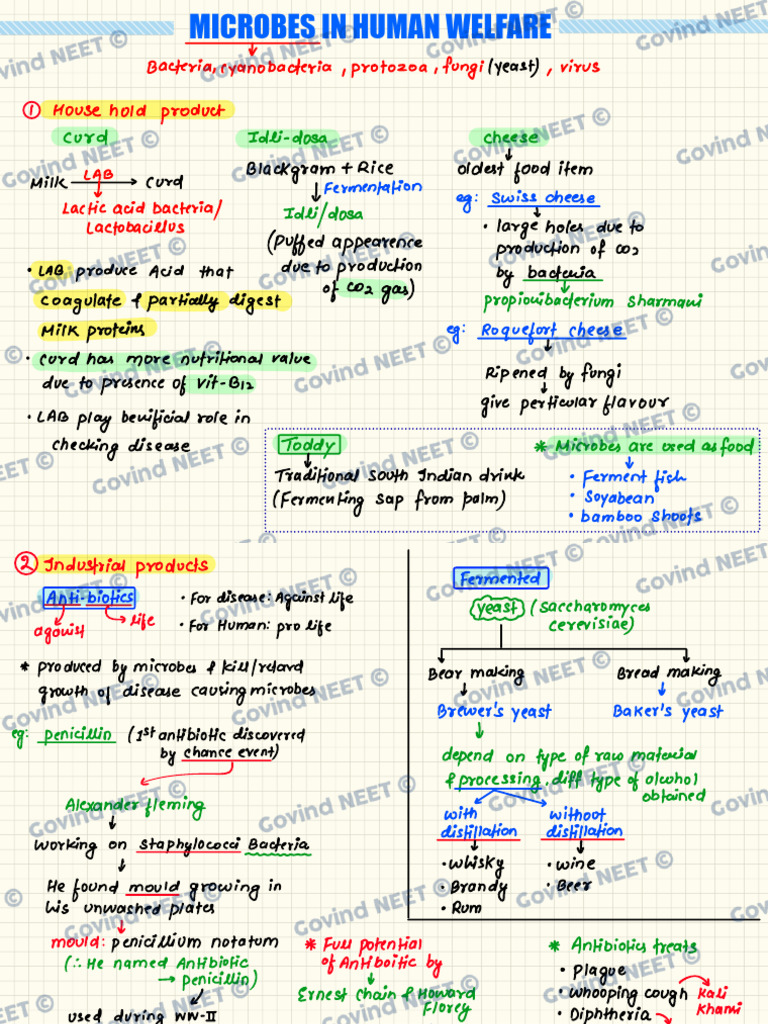 MICROBES IN HUMAN WELFARE
Bacteria, cyanobacteria, protozoa, fungi (yeast), virus
① House hold product
Curd
Milk LAB Curd
Lactic acid bacteria/
Lactobacillus
• LAB produce Acid that
coagulate & partially digest
Milk proteins
• Curd has more nutritional value
due to presence of vit-B12
• LAB play benificial role in
checking disease
Idli-dosa
Blackgram + Rice
Fermentation
Idli/dosa
(Puffed appearence
due to production
of CO2 gas)
cheese
oldest food item
eg: Swiss cheese
• large holes due to
production of CO2
by bacteria
propionibacterium sharmani
eg: Roquefort cheese
Ripened by fungi
give perticular flavour
Toddy
Traditional South Indian drink
(Fermenting sap from palm)
* Microbes are used as food
• Ferment fish
• Soyabean
• bamboo shoots
② Industrial products
Anti-biotics
agonist
life
• For disease: Against life
• For Human: pro life
* produced by microbes & kill/retard
growth of disease causing microbes
eg: penicillin (1st antibiotic discovered
by chance event)
Alexander fleming
working on staphylococci Bacteria
He found mould growing in
his unwashed plates
mould: penicillium notatum
(∴ He named Antibiotic
→ penicillin)
used during WW-II
Fermented
yeast (saccharomyces
cerevisiae)
Bear making
Brewer's yeast
Bread making
Baker's yeast
depend on type of raw material
& processing, diff type of alcohol
obtained
with
distillation
• Whisky
• Brandy
• Rum
without
distillation
• wine
• Beer
* Full potential
of Antiboitic by
Ernest Chain & Howard
Florey
* Antibiotics treats
• plague
• whooping cough
Kali
Khansi
• Diphtheria
Govind NEET ©